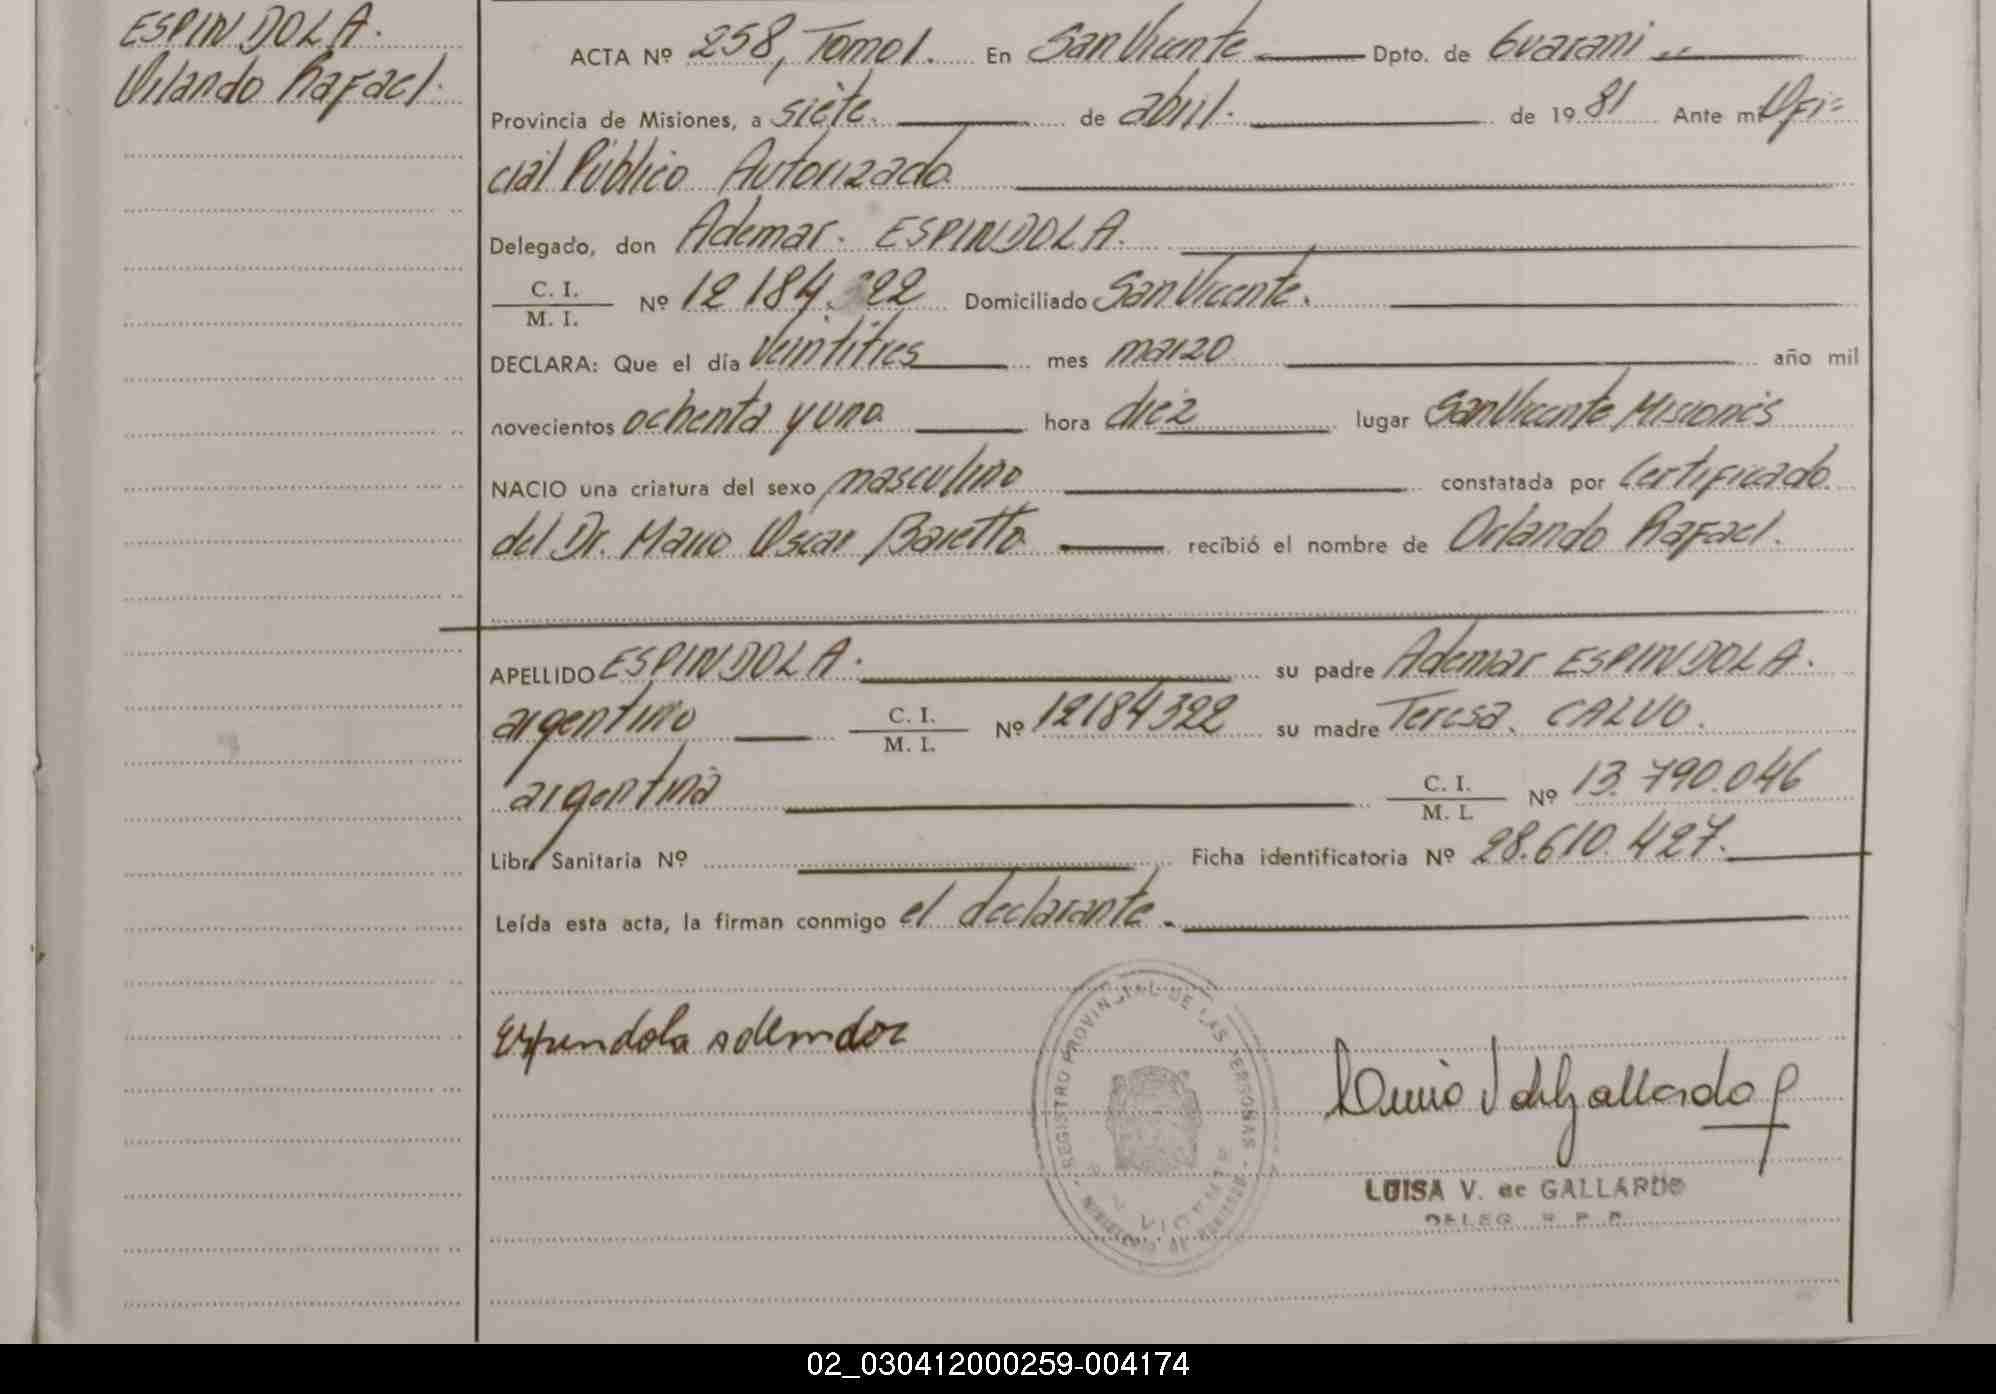 ESPINDOLA.
Orlando Rafael.
ACTA Nº 258, Tomo I. En San Vicente Dpto. de Guarani
Provincia de Misiones, a siete. de abril. de 1981 Ante mi Ofi=
cial Público Autorizado
Delegado, don Ademar. ESPINDOLA.
C. I.
M. I. Nº 12 184. 322 Domiciliado San Vicente.
DECLARA: Que el día Veintitres mes marzo año mil
novecientos ochenta y uno hora diez lugar San Vicente Misiones
NACIO una criatura del sexo masculino constatada por Certificado
del Dr. Mario Oscar Baretto recibió el nombre de Orlando Rafael.
APELLIDO ESPINDOLA. su padre Ademar ESPINDOLA.
argentino C. I.
M. I. Nº 12184322 su madre Teresa. CALVO.
argentina C. I.
M. I. Nº 13.790.046
Libr. Sanitaria Nº Ficha identificatoria Nº 28.610.427.
Leída esta acta, la firman conmigo el declarante.
Espindola ademar
REGISTRO PROVINCIAL DE LAS PERSONAS
LUISA V. de GALLARDO
DELEG. R. P. P.
02_030412000259-004174